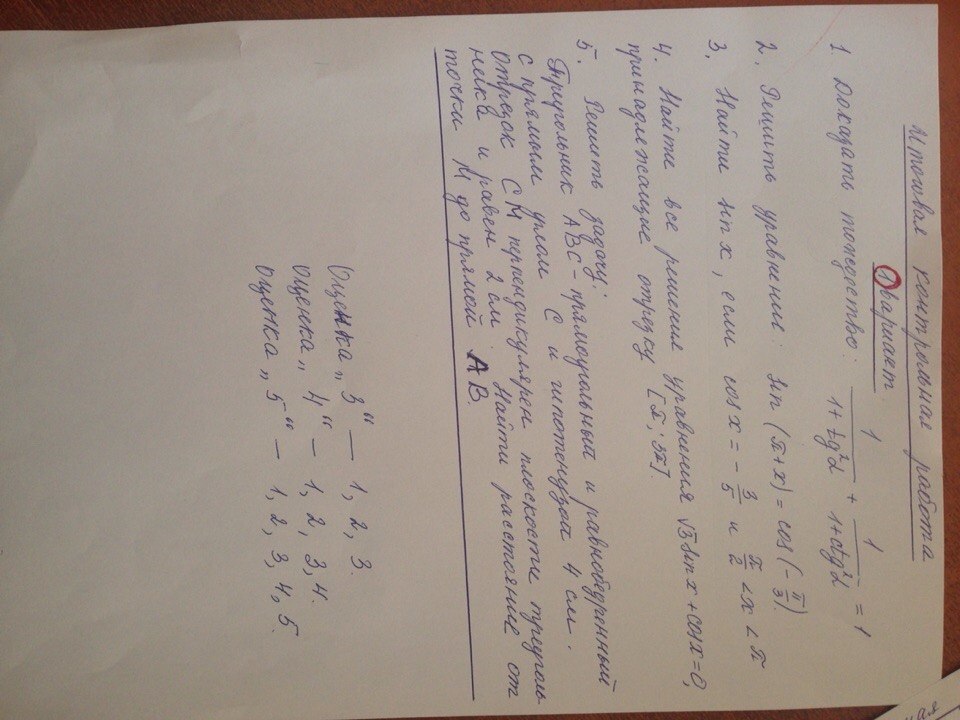 Итоговая контрольная работа
1 вариант
1. Доказать тождество: 1/(1+tg²α) + 1/(1+ctg²α) = 1
2. Решить уравнение: sin(π+x) = cos(-π/3)
3. Найти sin x, если cos x = -3/5 и π/2 < x < π
4. Найти все решения уравнения √3 sin x + cos x = 0,
принадлежащие отрезку [π; 3π].
5. Решить задачу:
Треугольник ABC - прямоугольный и равнобедренный
с прямым углом C и гипотенузой 4 см.
Отрезок CM перпендикулярен плоскости треуголь
ника и равен 2 см. Найти расстояние от
точки M до прямой AB.
Оценка „3“ — 1, 2, 3.
Оценка „4“ — 1, 2, 3, 4.
Оценка „5“ — 1, 2, 3, 4, 5.